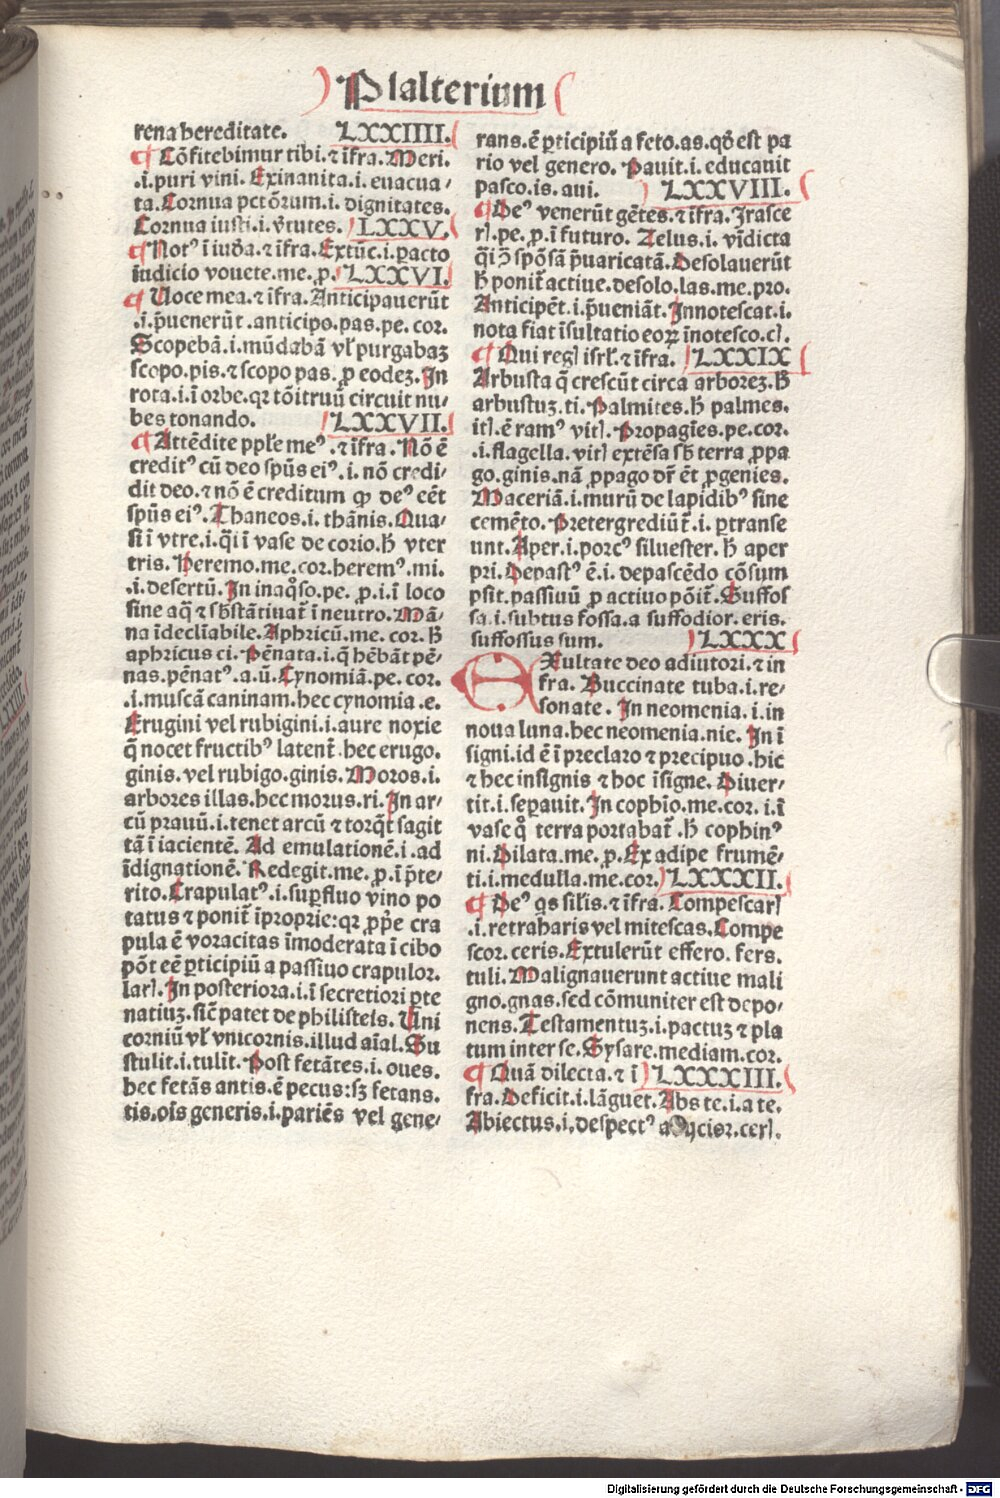 Psalterium
rena hereditate. LXXIIII.
Cōfitebimur tibi. ⁊ īfra. Meri.
.i. puri vini. Exinanita .i. euacua⸗
ta. Cornua pctōrum .i. dignitates.
Cornua iusti .i. v̄tutes. LXXV.
Notꝰ ī iuđa. ⁊ īfra. Extūc .i. ꝑacto
iudicio vouete. me. ꝓ. LXXVI.
Uoce mea. ⁊ īfra. Anticipauerūt
.i. p̄uenerūt. anticipo. pas. pe. cor.
Scopebā .i. mūdabā vl̓ purgabaꝫ
scopo. pis. ⁊ scopo pas. ꝓ eodeꝫ. In
rota .i. ī orbe. qꝛ tōitruū circuit nu⸗
bes tonando. LXXVII.
Attēdite pp̄le meꝰ. ⁊ īfra. Nō ē
creditꝰ cū deo sp̄us eiꝰ .i. nō credi⸗
dit deo. ⁊ nō ē creditum ꝙ deꝰ cēt
sp̄us eiꝰ. Thaneos .i. thānis. Qua⸗
si ī vtre .i. q̄i ī vase de corio. h̄ vter
tris. Heremo. me. cor. heremꝰ. mi.
.i. desertū. In inaq̊so. pe. ꝓ .i. ī loco
sine aq̄ ⁊ sb̄stātiuat̄ ī neutro. Mā⸗
na īdeclīabile. Aphricū. me. cor. h̄
aphricus ci. Pēnata .i. q̄ hēbāt pē⸗
nas. pēnatꝰ. a. ū. Cynomiā. pe. cor.
.i. muscā caninam. hec cynomia .e.
Erugini vel rubigini .i. aure noxie
q̄ nocet fructibꝰ latent̄. hec erugo.
ginis. vel rubigo. ginis. Moros .i.
arbores illas. hec morus. ri. In ar⸗
cū prauū .i. tenet arcū ⁊ torq̄t sagit
tā ī iacientē. Ad emulationē .i. ad
īdignationē. Redegit. me. ꝓ .i. p̄te⸗
rito. Crapulatꝰ .i. suꝑfluo vino po
tatus ⁊ ponit̄ īproprie: qꝛ ꝓp̄e cra
pula ē voracitas īmoderata ī cibo
pōt eē ꝑticipiū a passiuo crapulor.
larꝭ. In posteriora .i. ī secretiori ꝑte
natiuꝫ. sic̄ patet de philisteis. Uni
corniū vl̓ vnicornis. illud aīal. Su
stulit .i. tulit. Post fetātes .i. oues.
hec fetās antis. ē pecus: sꝫ fetans.
tis. oīs generis .i. pariēs vel gene⸗
rans. ē ꝑticipiū a feto. as. qđ est pa
rio vel genero. Pauit .i. educauit
pasco. is. aui. LXXVIII.
Deꝰ venerūt gētes. ⁊ īfra. Irasce
rꝭ. pe. ꝓ .i. futuro. Zelus .i. vīdicta
q̄i ꝯ spōsā p̄uaricatā. Desolauerūt
h̄ ponit̄ actiue. desolo. las. me. pro.
Anticipēt .i. p̄ueniāt. Innotescat .i.
nota fiat īsultatio eoꝝ īnotesco. cꝭ.
Qui regꝭ isrl̓. ⁊ īfra. LXXIX
Arbusta q̄ crescūt circa arboreꝫ. h̄
arbustuꝫ. ti. Palmites. h̄ palmes.
itꝭ. ē ramꝰ vitꝭ. Propagīes. pe. cor.
.i. flagella. vitꝭ extēsa sb̄ terra ꝓpa
go. ginis. nā ꝓpago dr̄ ēt ꝓgenies.
Maceriā .i. murū de lapidibꝰ sine
cemēto. Pretergrediūt̄ .i. ꝑtranse
unt. Aper .i. porcꝰ siluester. h̄ aper
pri. Depastꝰ ē .i. depascēdo cōsum
psit. passiuū ꝓ actiuo pōit̄. Suffos
sa .i. subtus fossa. a suffodior. eris.
suffossus sum. LXXX
EXultate deo adiutori. ⁊ in
fra. Buccinate tuba .i. re⸗
sonate. In neomenia .i. in
noua luna. hec neomenia. nie. In ī
signi. id ē ī preclaro ⁊ precipuo. hic
⁊ hec insignis ⁊ hoc īsigne. Diuer⸗
tit .i. seꝑauit. In cophīo. me. cor. i. ī
vase q̊ terra portabat̄. h̄ cophinꝰ
ni. Dilata. me. ꝓ. Ex adipe frumē⸗
ti .i. medulla. me. cor. LXXXII.
Deꝰ qs sil̓is. ⁊ īfra. Compescarꝭ
.i. retraharis vel mitescas. Compe
scor. ceris. Extulerūt effero. fers.
tuli. Malignauerunt actiue mali
gno. gnas. sed cōmuniter est depo⸗
nens. Testamentuꝫ .i. pactuꝫ ⁊ pla
tum inter se. Sysare. mediam. cor.
Quā dilecta. ⁊ ī LXXXIII.
fra. Deficit .i. lāguet. Abs te .i. a te.
Abiectus .i. despectꝰ ijcior. cerꝭ.
Digitalisierung gefördert durch die Deutsche Forschungsgemeinschaft - DFG